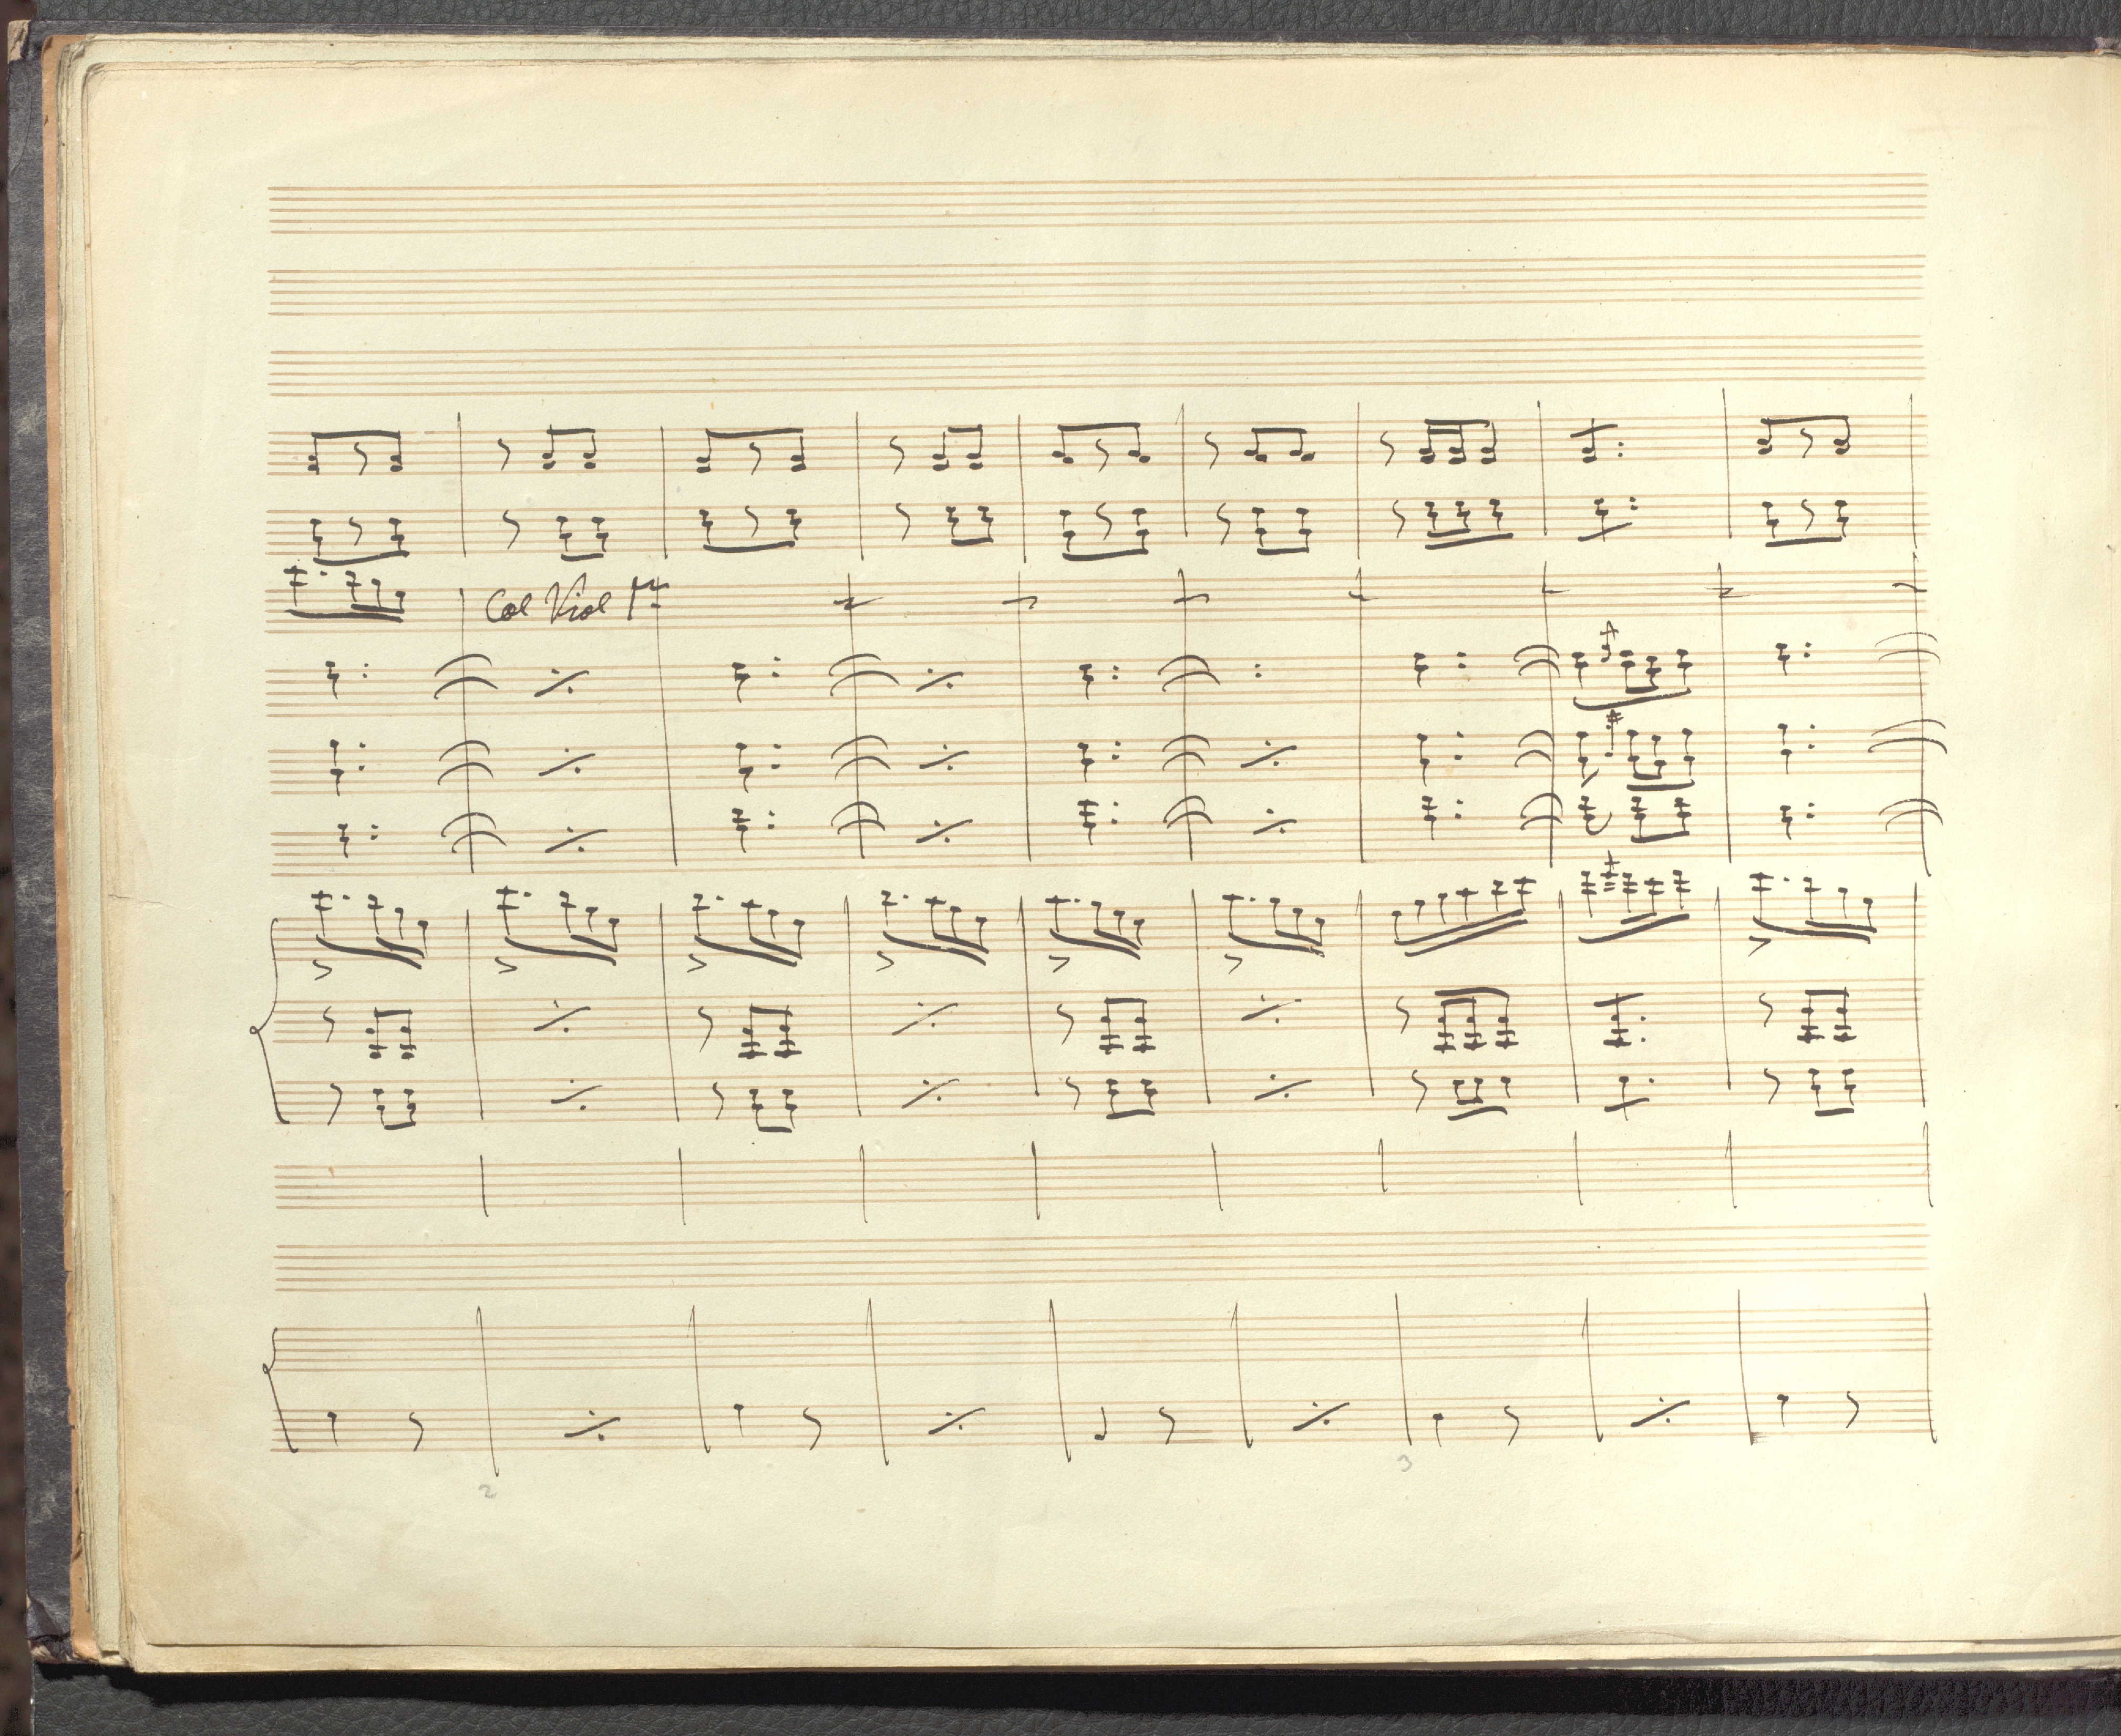 Col Viol 1º
2
3